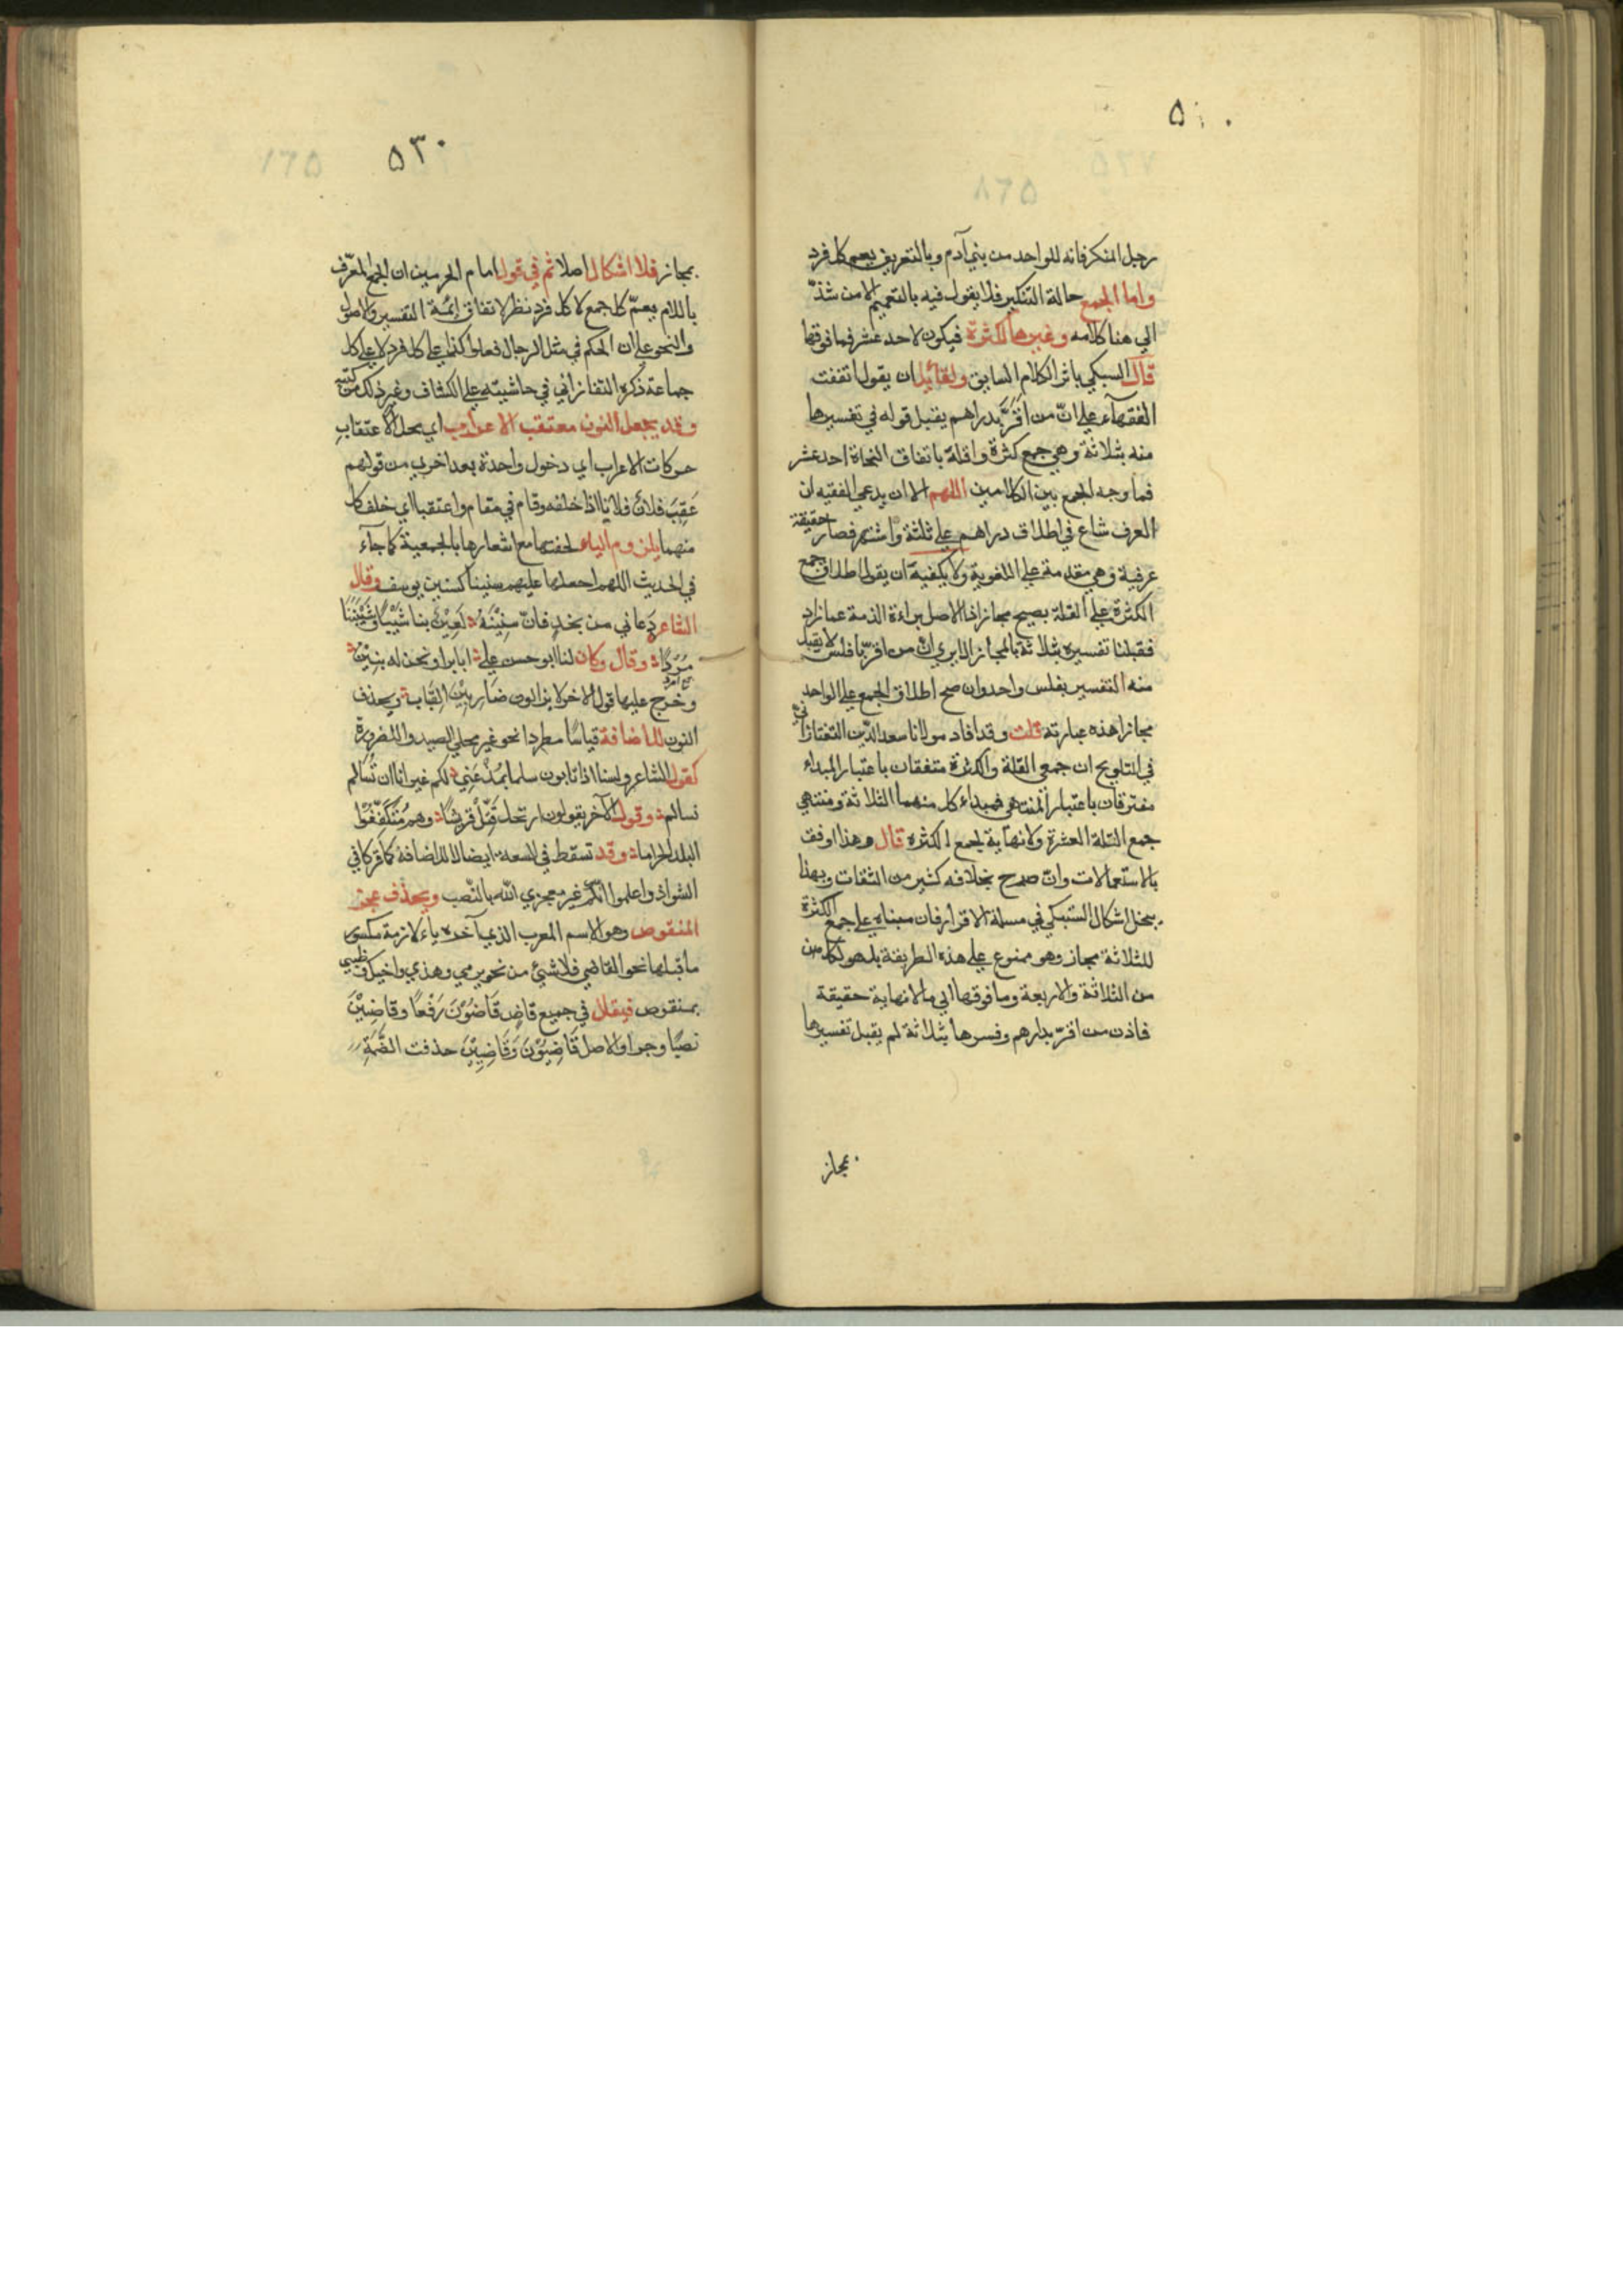 رجل المنكر فانه للواحد من بني آدم وبالتعريف يعم كل فرد
واما الجمع حالة التنكير فلا يقول فيه بالتعميم الا من شذّ
الى هنا كلامه وغيرها للكثرة فيكون لاحد عشر فما فوقها
قال السبكي باثر الكلام السابق ولقائل ان يقول اتفقت
الفقهآء على انّ من اقرّ بدراهم يقبل قوله في تفسيرها
منه بثلاثة وهي جمع كثرة واقله باتفاق النحاة احد عشر
فما وجه الجمع بين الكلامين اللهم الا ان يدعي الفقيه ان
العرف شاع في اطلاق دراهم على ثلثة واشتهر فصار حقيقة
عرفية وهي مقدمة على اللغوية ولا يكفيه ان يقول اطلاق جمع
الكثرة على القلة يصح مجازا اذ الاصل براءة الذمة عما زاد
فقبلنا تفسيره بثلاثة بالمجاز الا يرى ان من اقرّ بافلس لا يقبل
منه التفسير بفلس واحد وان صح اطلاق الجمع على الواحد
مجازا هذه عبارته قلت وقد افاد مولانا سعد الدّين التفتازاني
في التلويح ان جمعي القلة والكثرة متفقان باعتبار المبداء
مفترقان باعتبار المنتهى فمبداء كل منهما الثلاثة ومنتهى
جمع القلة العشرة ولا نهاية لجمع الكثرة قال وهذا اوفق
بالاستعمالات وانّ صرح بخلافه كثير من الثقات وبهذا
ينحل اشكال السّبكي في مسئلة الاقرار فان مبناه على جمع الكثرة
للثلاثة مجاز وهو ممنوع على هذه الطريقة بل هو لكل من
من الثلاثة والاربعة وما فوقها الى ما لا نهاية حقيقة
فاذن من اقرّ بدارهم وفسرها بثلاثة لم يقبل تفسيرها
بمجاز
٥٣٠
بمجاز فلا اشكال اصلا ثم في قول امام الحرمين ان الجمع المعرّف
باللام يعمّ كل جمع لا كل فرد نظر لاتفاق ائمة التفسير والاصول
والنحو على ان الحكم في مثل الرجال فعلوا كذا على كل فرد لا على كل
جماعة ذكره التفتازاني في حاشيته على الكشاف وغير ذلك من كتبه
وقد يجعل النون معتقب الاعراب اي محل الاعتقاب
حركات الاعراب اي دخول واحدة بعد اخرى من قولهم
عَقِبَ فلان فلانا اذا خلفه وقام في مقام واعتقبا اي خلف كل
منهما يلزوم الياء لخفتها مع اشعارها بالجمعية كما جآء
في الحديث اللهم اجعلها عليهم سنينا كسنين يوسف وقال
الشاعر دعاني من نجد فانّ سنينَهُ لَعِبْنَ بنا شِيْبًا وشَيَّبْنَنَا
مُرْدًا وقال وكان لنا ابو حسن علي ابا برا ونحن له بنينُ
جمع امرد
وخرج عليها قول الاخر لا يزالون ضاربينَ القباب ويحذف
النون للاضافة قياسًا مطردا نحو غير محلي الصيد وللضرورة
كقول الشاعر ولسنا اذا تابون سلما بمُذْعِنِي لكم غير انا ان نُسَالم
نسالم وقول الآخر يقولون ارتحل قَتِّلْ قريشًا وهم مُتَكَنِّفُوا
البلد الحراما وقد تسقط في السعة ايضا لا للاضافة كما قركا في
الشواذ واعلموا انّكم غير معجزي اللّه بالنّصب ويحذف عجز
المنقوص وهو الاسم المعرب الذي آخره ياء لازمة مكسور
ما قبلها نحو القاضي فلا شيء من نحو يرمي وهذي واخيك وظبي
بمنقوص فيقال في جميع قاضٍ قَاضُوْنَ رَفْعًا وقاضِيْنَ
نصبًا وجرا والاصل قَاضِيُوْنَ وَقَاضِيِيْنَ حذفت الضّمّةِ